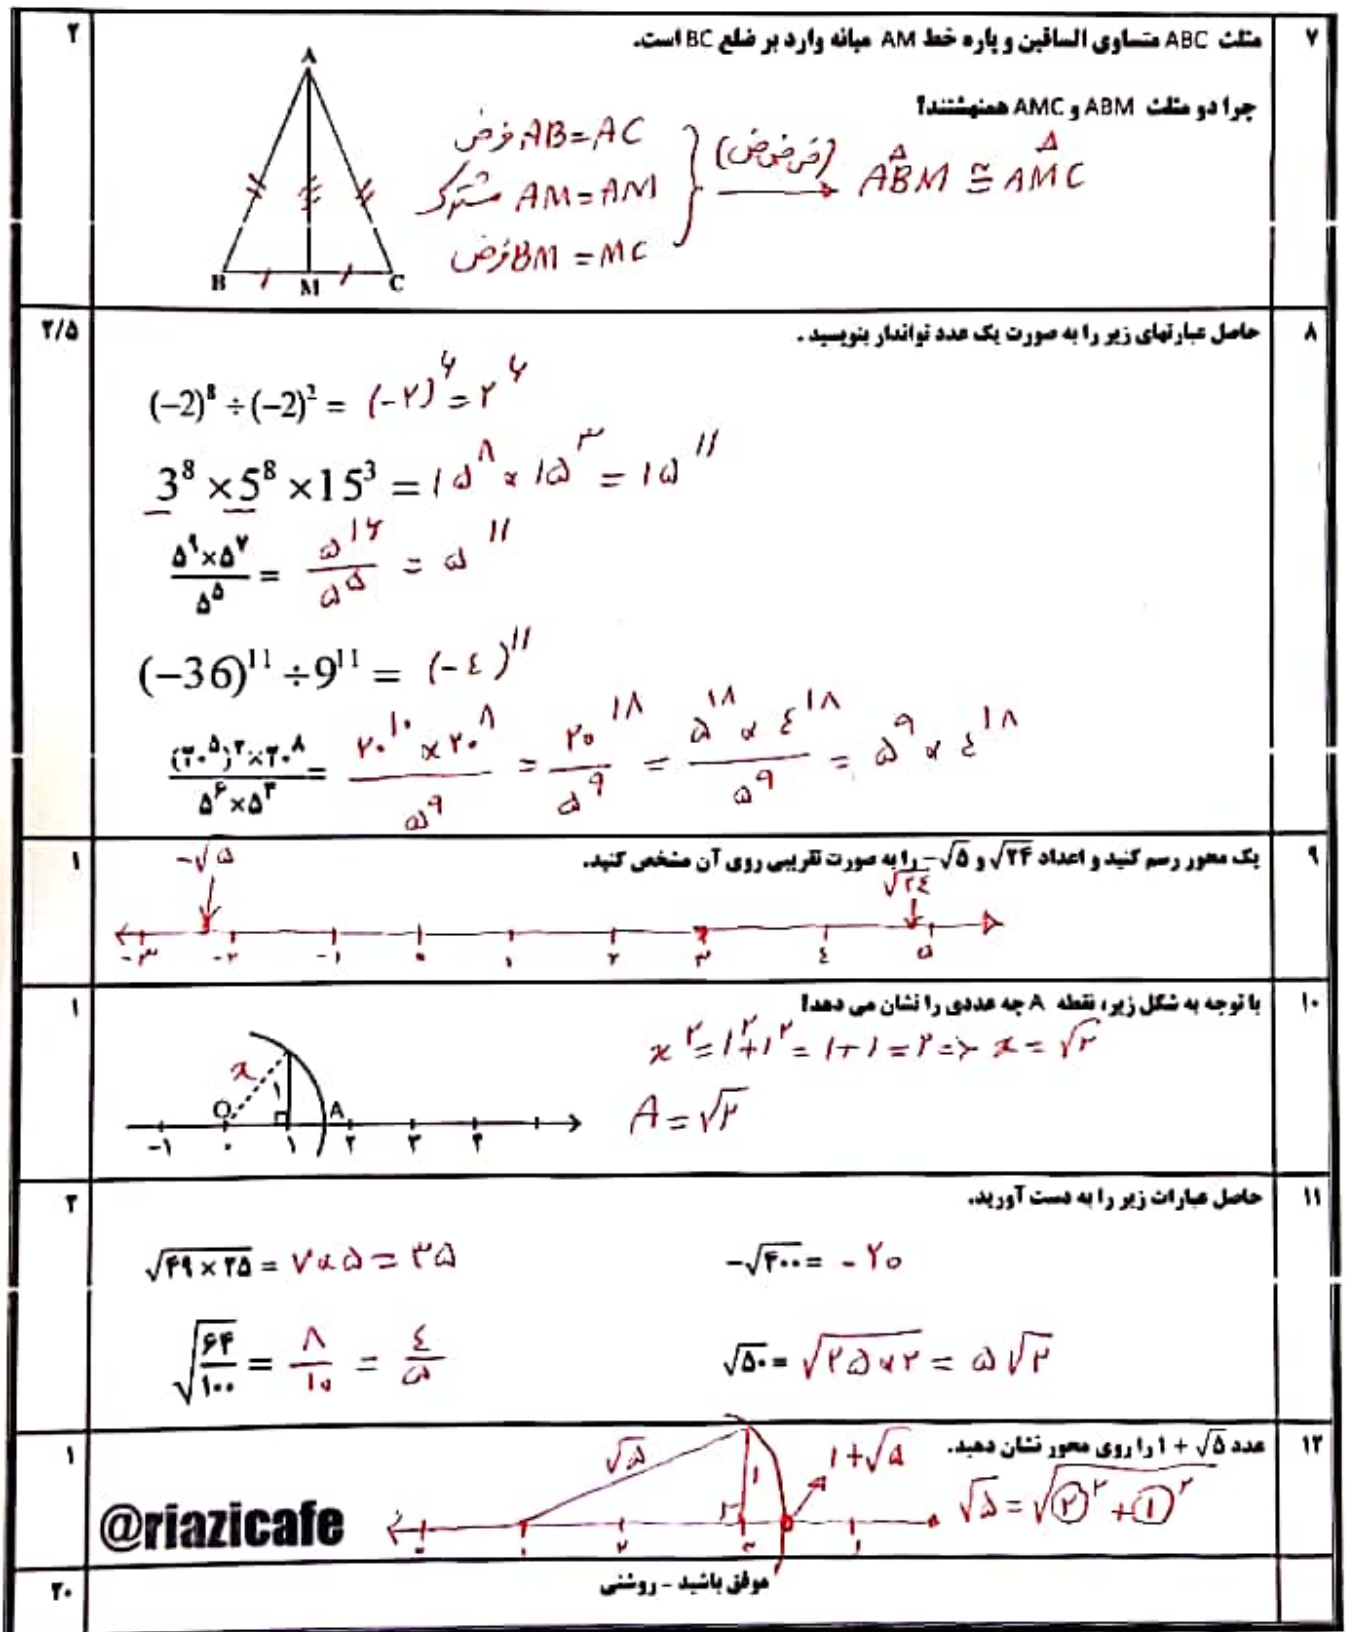 ۷ مثلث ABC متساوی الساقین و پاره خط AM میانه وارد بر ضلع BC است. ۲
چرا دو مثلث ABM و AMC همنهشتند؟
A
B M C
AB=AC فرض
AM=AM مشترک
BM=MC فرض
(ض ض ض)
ABM ≅ AMC
۸ حاصل عبارتهای زیر را به صورت یک عدد تواندار بنویسید . ۲/۵
(-2)⁸ ÷ (-2)² = (-۲)^۶ = ۲^۶
3⁸ × 5⁸ × 15³ = ۱۵^۸ × ۱۵^۳ = ۱۵^۱۱
(۵^۹ × ۵^۷)/۵^۵ = ۵^۱۶/۵^۵ = ۵^۱۱
(-36)¹¹ ÷ 9¹¹ = (-۴)^۱۱
((۲۰^۵)^۲ × ۲۰^۸)/(۵^۶ × ۵^۳) = (۲۰^۱۰ × ۲۰^۸)/۵^۹ = ۲۰^۱۸/۵^۹ = (۵^۱۸ × ۴^۱۸)/۵^۹ = ۵^۹ × ۴^۱۸
۹ یک محور رسم کنید و اعداد √۲۴ و -√۵ را به صورت تقریبی روی آن مشخص کنید. ۱
-√۵ √۲۴
-۳ -۲ -۱ ۰ ۱ ۲ ۳ ۴ ۵
۱۰ با توجه به شکل زیر، نقطه A چه عددی را نشان می دهد؟ ۱
x^۲ = ۱^۲+۱^۲ = ۱+۱ = ۲ => x = √۲
A = √۲
x ۱
O A
-۱ ۰ ۱ ۲ ۳ ۴
۱۱ حاصل عبارات زیر را به دست آورید. ۲
√(۴۹ × ۲۵) = ۷×۵ = ۳۵
-√۴۰۰ = -۲۰
√(۶۴/۱۰۰) = ۸/۱۰ = ۴/۵
√۵۰ = √(۲۵×۲) = ۵√۲
۱۲ عدد 1 + √۵ را روی محور نشان دهید. ۱
√۵ = √(۲^۲ + ۱^۲)
√۵ ۱ ۱+√۵
۰ ۱ ۲ ۳
@riazicafe
موفق باشید - روشنی
۲۰